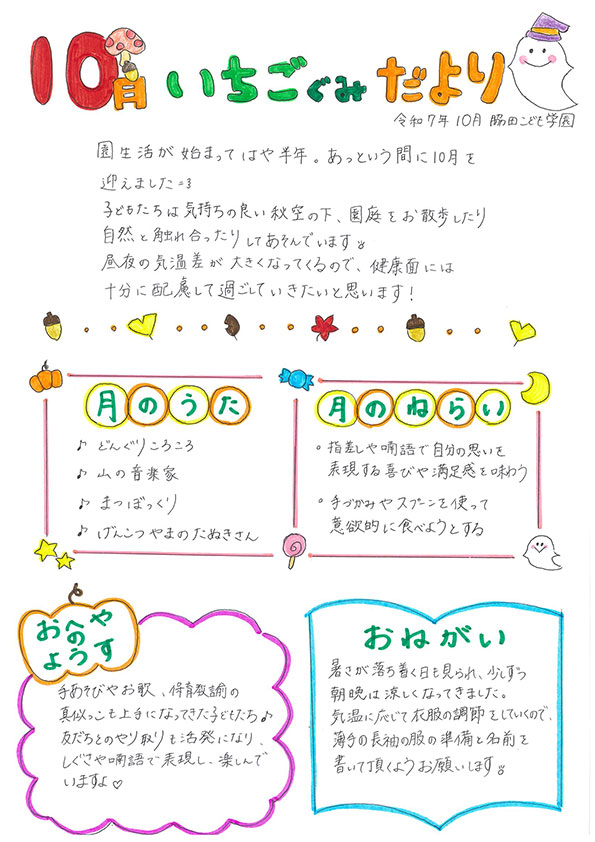 10月いちごぐみだより
令和7年10月 脇田こども学園
園生活が始まってはや半年。あっという間に10月を
迎えました=3
子どもたちは気持ちの良い秋空の下、園庭をお散歩したり
自然と触れ合ったりしてあそんでいます。
昼夜の気温差が大きくなってくるので、健康面には
十分に配慮して過ごしていきたいと思います!
月のうた
♪ どんぐりころころ
♪ 山の音楽家
♪ まつぼっくり
♪ げんこつやまのたぬきさん
月のねらい
・指差しや喃語で自分の思いを
表現する喜びや満足感を味わう
・手づかみやスプーンを使って
意欲的に食べようとする
おへやの
ようす
手あそびやお歌、保育教諭の
真似っこも上手になってきた子どもたち♪
友だちとのやり取りも活発になり、
しぐさや喃語で表現し、楽しんで
いますよ♡
おねがい
暑さが落ち着く日も見られ、少しずつ
朝晩は涼しくなってきました。
気温に応じて衣服の調節をしていくので、
薄手の長袖の服の準備と名前を
書いて頂くようお願いします。